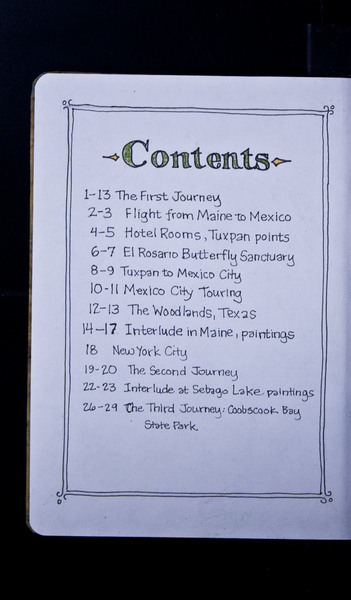 Contents
1-13 The First Journey
2-3 Flight from Maine to Mexico
4-5 Hotel Rooms, Tuxpan points
6-7 El Rosario Butterfly Sanctuary
8-9 Tuxpan to Mexico City
10-11 Mexico City Touring
12-13 The Woodlands, Texas
14-17 Interlude in Maine, paintings
18 New York City
19-20 The Second Journey
22-23 Interlude at Sebago Lake paintings
26-29 The Third Journey: Cobscook Bay
State Park